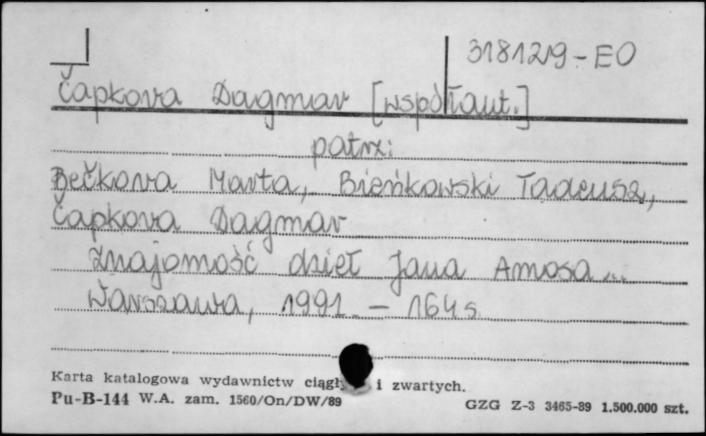 3181219-EO
Čapkova Dagmar [współaut.]
patrz:
Bečkova Marta, Bieńkowski Tadeusz,
Čapkova Dagmar
Znajomość dzieł Jana Amosa...
Warszawa, 1991. - 164 s.
Karta katalogowa wydawnictw ciągły i zwartych.
Pu-B-144 W.A. zam. 1560/On/DW/89 GZG Z-3 3465-89 1.500.000 szt.